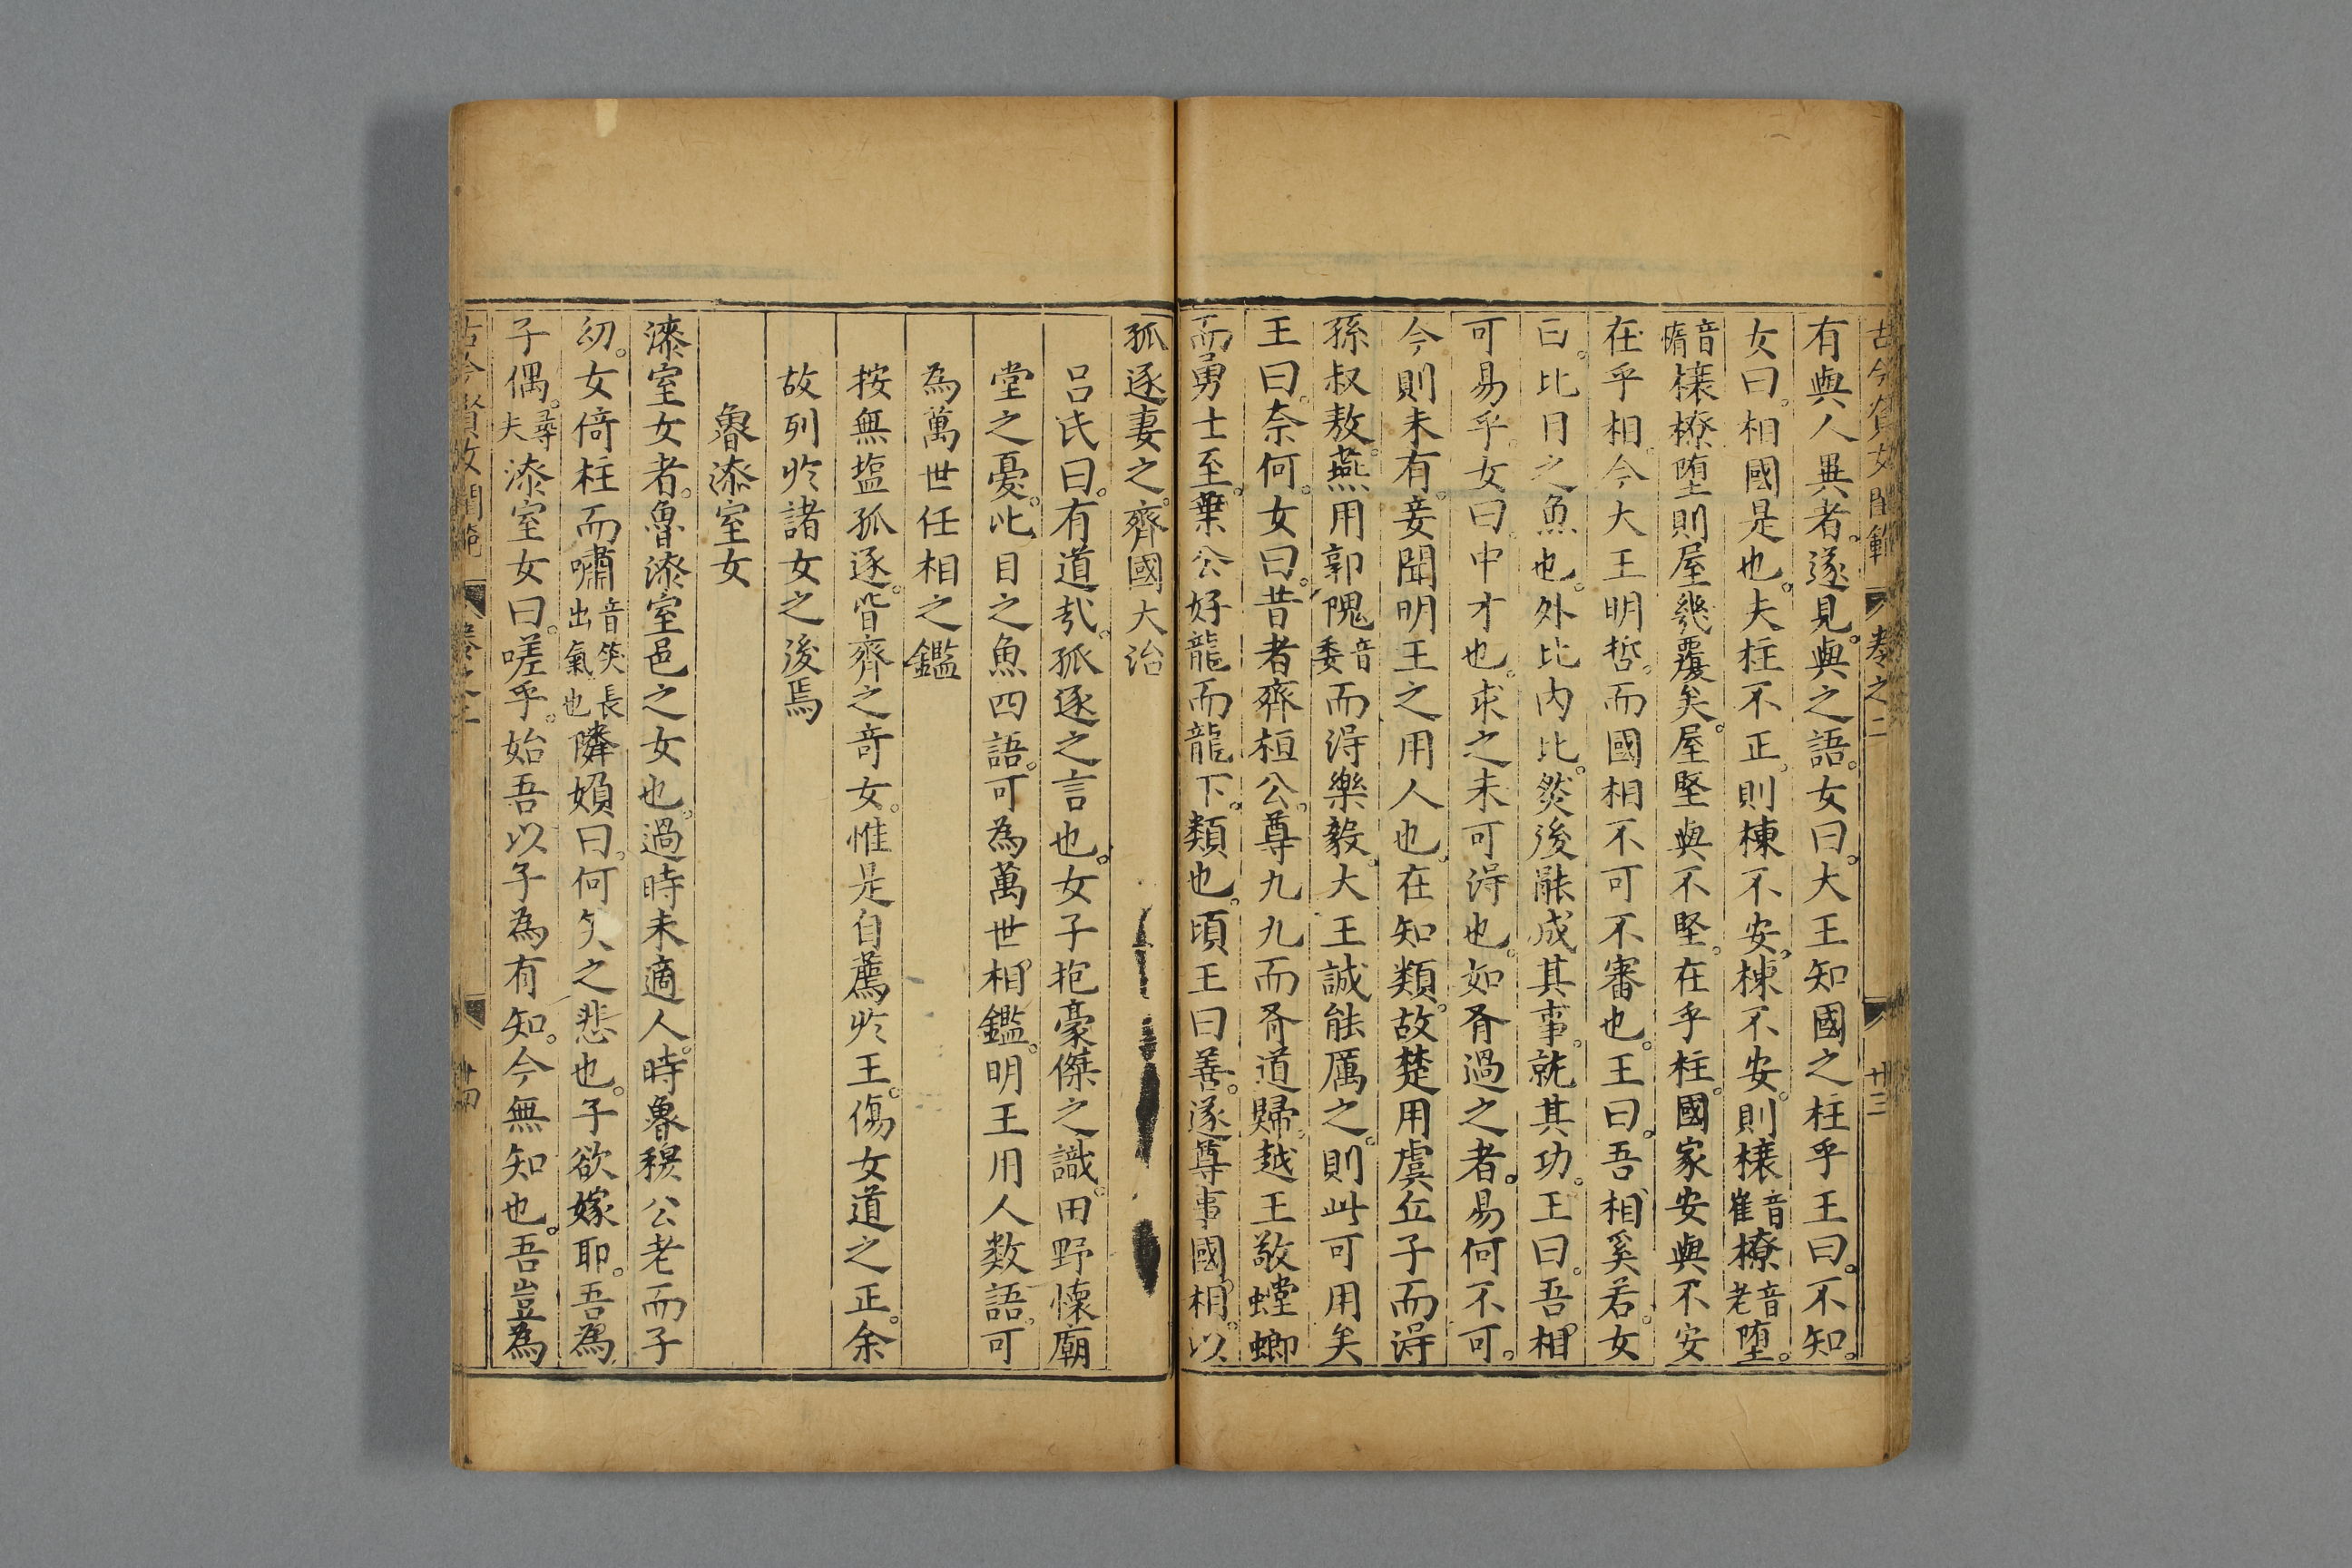 古今賢女閨範 卷之二 廿三
有與人異者。遂見。與之語。女曰。大王知國之柱乎王曰。不知。
女曰。相國是也。夫柱不正。則棟不安。棟不安。則榱音崔橑音老墮。
音惰榱橑墮則屋幾覆矣。屋堅與不堅。在乎柱。國家安與不安
在乎相。今大王明哲。而國相不可不審也。王曰。吾相奚若。女
曰。比目之魚也。外比內比。然後能成其事。就其功。王曰。吾相
可易乎。女曰。中才也。求之未可得也。如有過之者。易何不可。
今則未有。妾聞明王之用人也。在知類。故楚用虞丘子而得
孫叔敖。燕用郭隗音委而得樂毅。大王誠能厲之。則此可用矣
王曰。奈何。女曰。昔者齊桓公。尊九九而有道歸。越王敬螳螂
而勇士至。葉公好龍而龍下。類也。頃王曰善。遂尊事國相。以
孤逐妻之。齊國大治
呂氏曰。有道哉。孤逐之言也。女子抱豪傑之識。田野懷廟
堂之憂。比目之魚四語。可為萬世相鑑。明王用人数語。可
為萬世任相之鑑
按無塩孤逐。皆齊之竒女。惟是自薦扵王。傷女道之正。余
故列扵諸女之後焉
魯漆室女
漆室女者。魯漆室邑之女也。過時未適人。時魯穆公老而子
幼。女倚柱而嘯音笑長出氣也隣婦曰。何之悲也。子欲嫁耶。吾為
子偶。尋夫漆室女曰。嗟乎。始吾以子為有知。今無知也。吾豈為
古今賢女閨範 卷之二 廿四